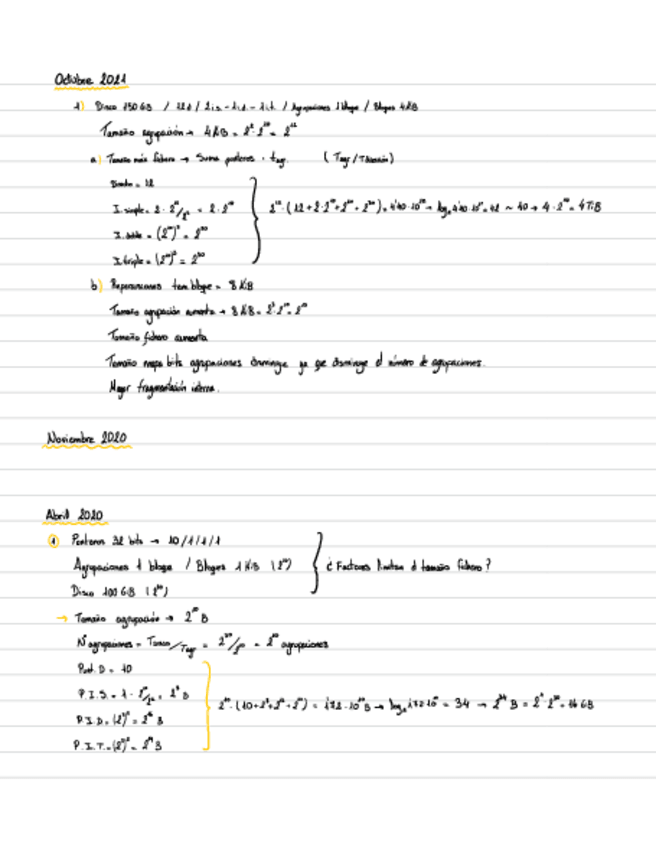 Octubre 2021
1) Disco 150 GB / 12d / 2is - 1id - 1it / Agrupaciones 1 bloque / Bloques 4KB
Tamaño agrupación → 4KB = 2² · 2¹⁰ = 2¹²
a) Tamaño máx fichero → Suma punteros · tagr. (Tagr/Tdirección)
Directo = 12
I. simple = 2 ·
I. doble = (2¹⁰)² = 2²⁰
I. triple = (2¹⁰)³ = 2³⁰
2¹² · (12 + 2 · 2¹⁰ + 2²⁰ + 2³⁰) =
b) Repercusiones tam bloque = 8 KiB
Tamaño agrupación aumenta → 8 KB = 2³ · 2¹⁰ = 2¹³
Tamaño fichero aumenta
Tamaño mapa bits agrupaciones disminuye ya que disminuye el número de agrupaciones.
Mayor fragmentación interna.
Noviembre 2020
Abril 2020
1 Punteros 32 bits → 10/1/1/1
Agrupaciones 1 bloque / Bloques 1 KiB (2¹⁰)
Disco 100 GiB
¿Factores limitan el tamaño fichero?
→ Tamaño agrupación → 2¹⁰ B
Nº agrupaciones = agrupaciones
Punt. D = 10
P.I.S. = 1 · = 2⁸ B
P.I.D. = (2⁸)² = 2¹⁶ B
P.I.T. = (2⁸)³ = 2²⁴ B
2¹⁰ · (10 + 2⁸ + 2¹⁶ + 2²⁴) = = 34 → 2³⁴ B = 2⁴ · 2³⁰ = 16 GB